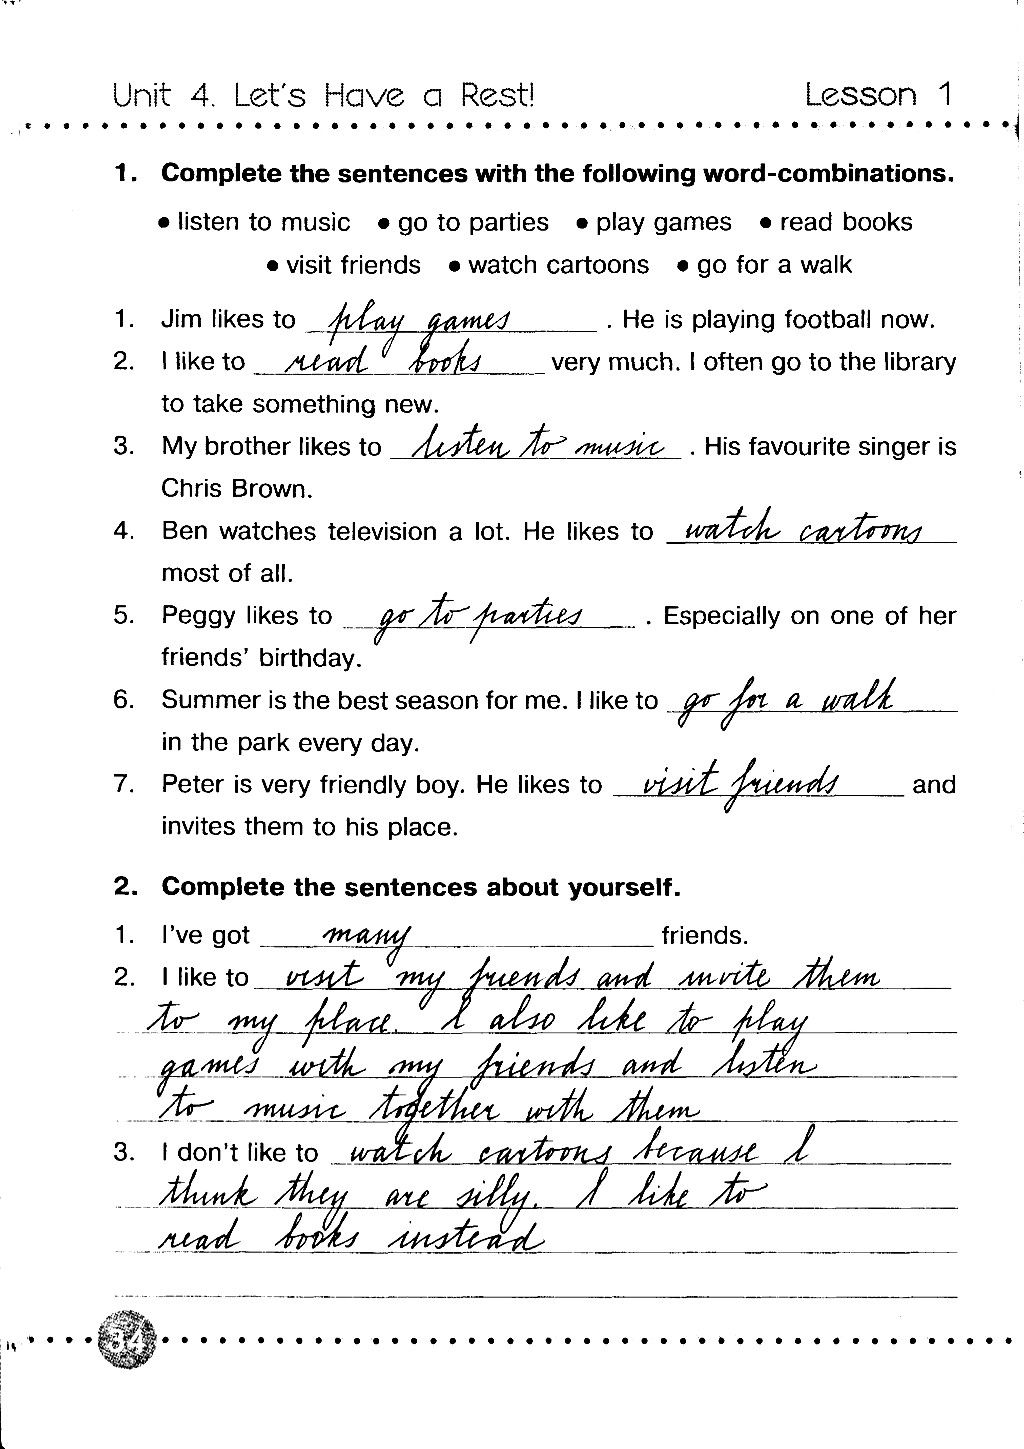 Unit 4. Let's Have a Rest! Lesson 1
1. Complete the sentences with the following word-combinations.
• listen to music • go to parties • play games • read books
• visit friends • watch cartoons • go for a walk
1. Jim likes to play games. He is playing football now.
2. I like to read books very much. I often go to the library
to take something new.
3. My brother likes to listen to music. His favourite singer is
Chris Brown.
4. Ben watches television a lot. He likes to watch cartoons
most of all.
5. Peggy likes to go to parties. Especially on one of her
friends' birthday.
6. Summer is the best season for me. I like to go for a walk
in the park every day.
7. Peter is very friendly boy. He likes to visit friends and
invites them to his place.
2. Complete the sentences about yourself.
1. I've got many friends.
2. I like to visit my friends and invite them
to my place. I also like to play
games with my friends and listen
to music together with them
3. I don't like to watch cartoons because I
think they are silly. I like to
read books instead
34